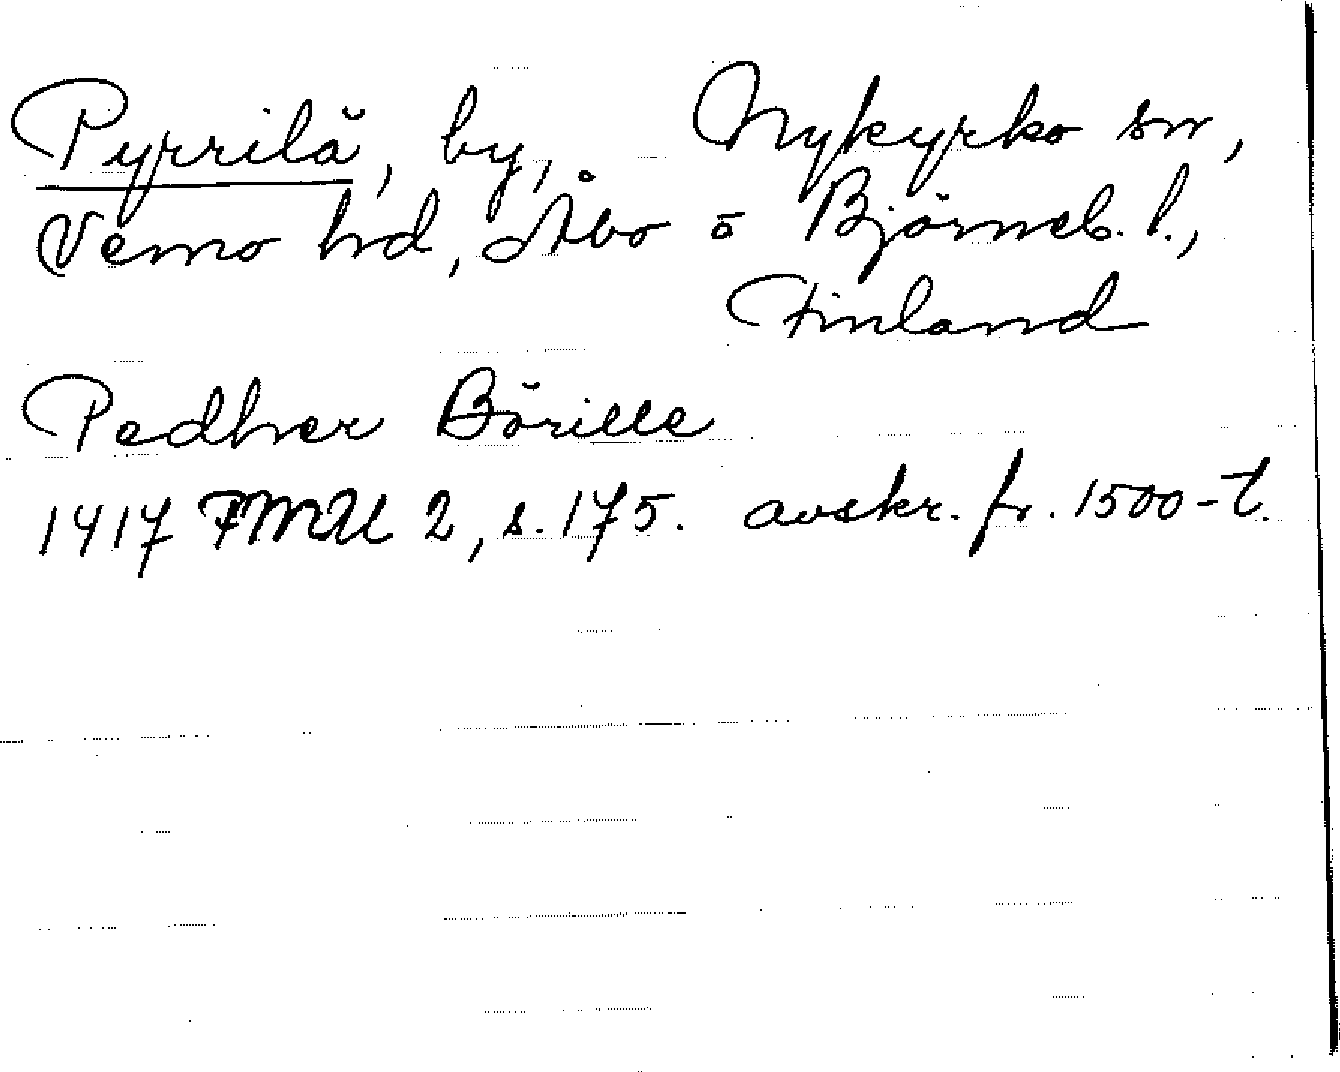 Pyrrilä, by, Nykyrko sn,
Vemo hd, Åbo o Björneb. l.,
Finland
Pedher Börille
1417 FMU 2, s. 175. avskr. fr. 1500-t.